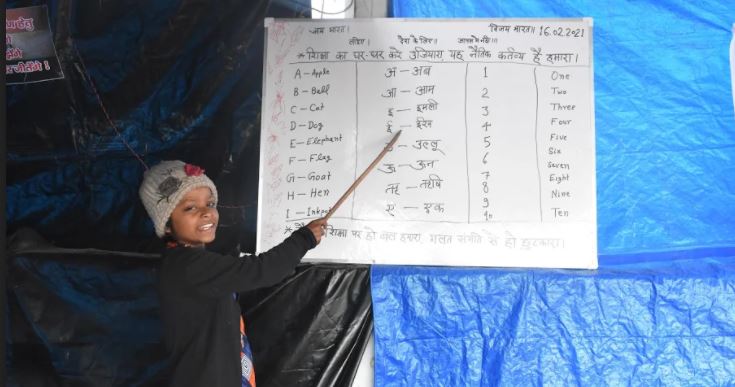 जय भारत। विजय भारत॥ 16.02.2021
* शिक्षा का घर-घर करे उजियारा यह नैतिक कर्तव्य है हमारा।
A – Apple अ – अब 1 One
B – Ball आ – आम 2 Two
C – Cat इ – इमली 3 Three
D – Dog ई – ईरन 4 Four
E – Elephant उ – उल्लू 5 Five
F – Flag ऊ – ऊन 6 Six
G – Goat 7 Seven
H – Hen ऋ – ऋषि 8 Eight
I – Inkpot ए – एक 9 Nine
10 Ten
शिक्षा पर हो बल हमारा, गलत संगति से हो छुटकारा।